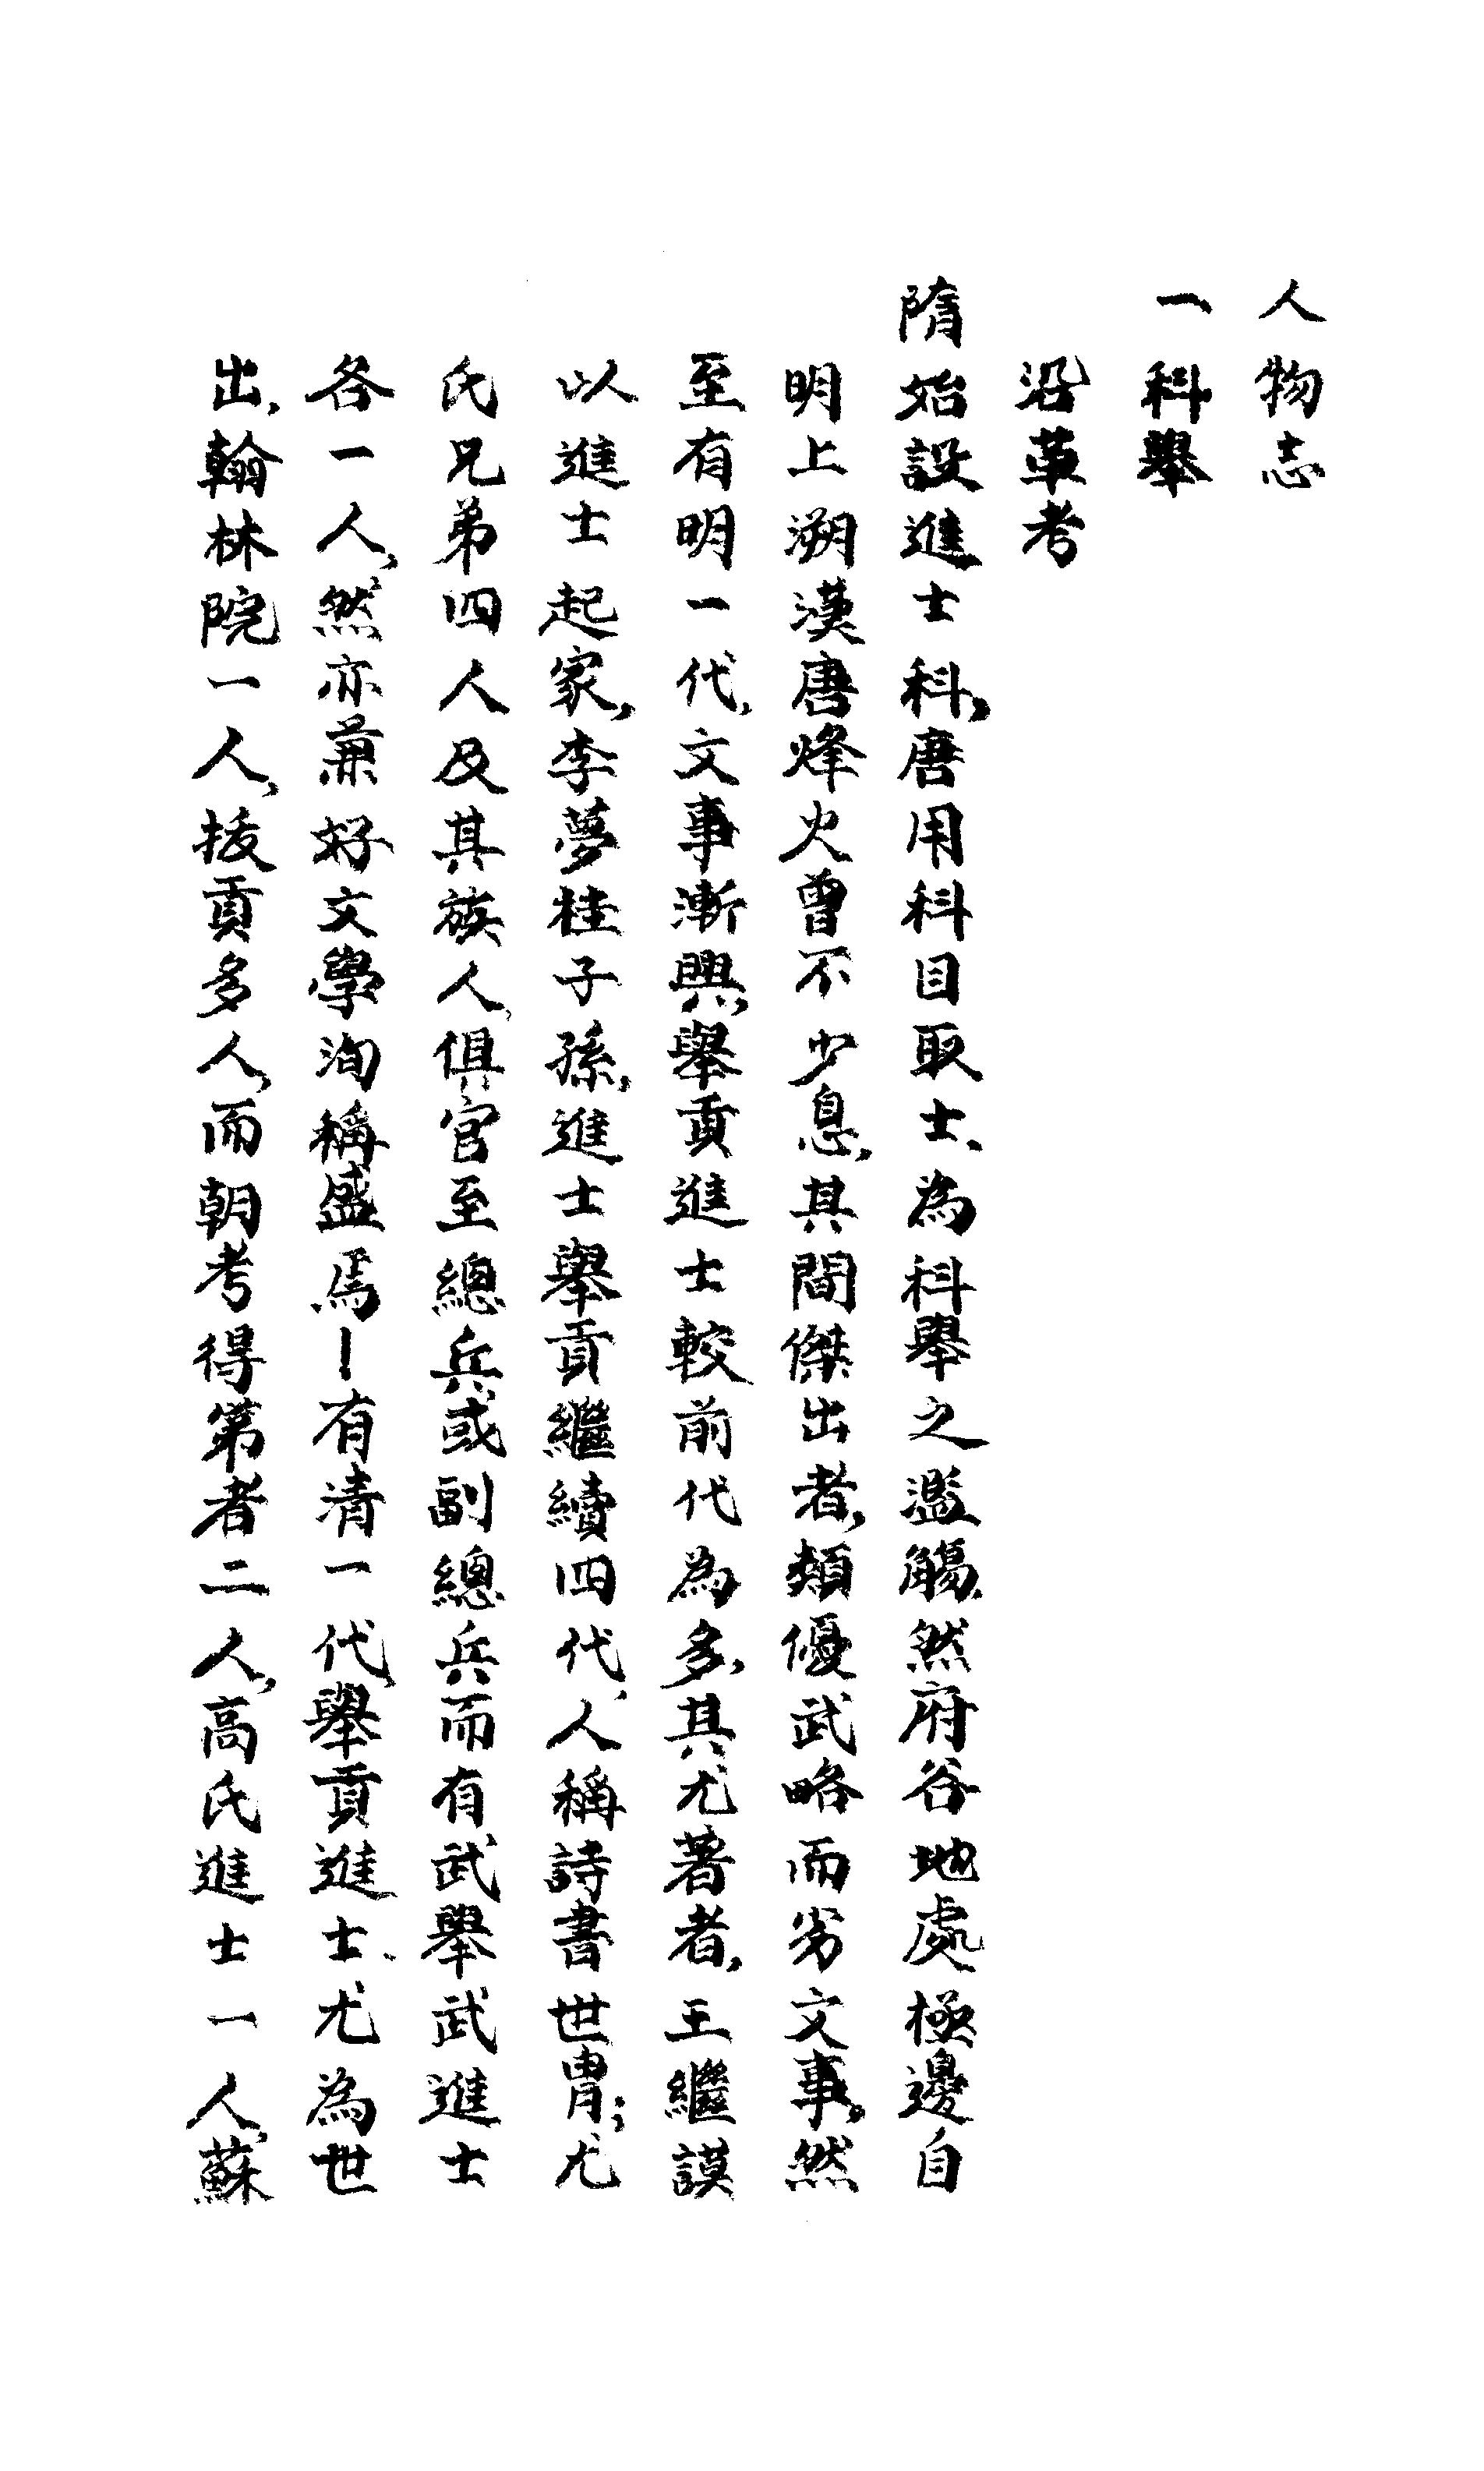 人物志
一科舉
沿革考
隋始設進士科，唐用科目取士、為科舉之濫觴，然府谷地處極邊自
明上溯漢唐烽火曾不少息，其間傑出者，類優武略而劣文事。然
至有明一代，文事漸興，舉貢進士較前代為多，其尤著者，王繼謨
以進士起家，李夢桂子孫，進士舉貢繼續四代，人稱詩書世胄；尤
氏兄弟四人及其族人，俱官至總兵或副總兵而有武舉武進士
各一人，然亦兼好文學洵稱盛焉—有清一代，舉貢進士、尤為世
出，翰林院一人，拔貢多人，而朝考得第者二人，高氏進士一人，蘇